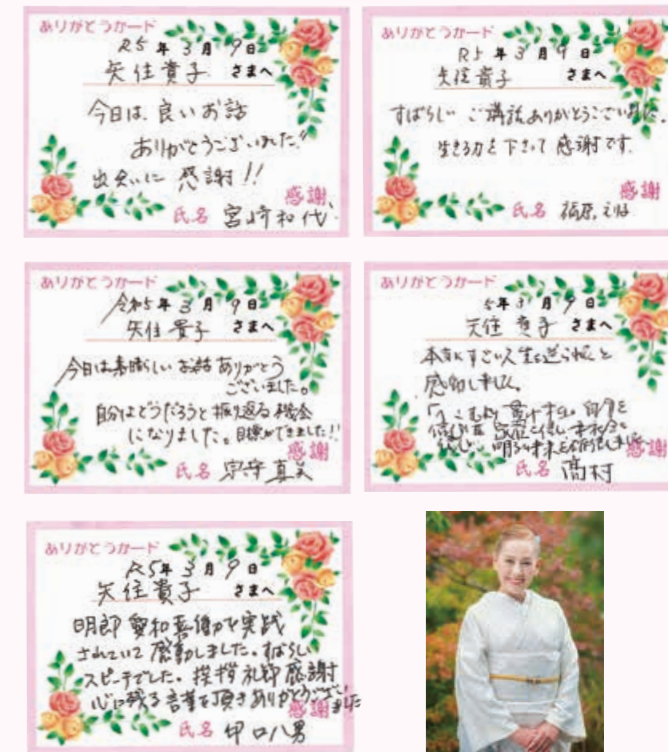 ありがとうカード
R5年3月9日
矢住貴子 さまへ
今日は、良いお話
ありがとうございました!!
出会いに 感謝!!
感謝
氏名 宮崎和代
ありがとうカード
R5年3月9日
矢住貴子 さまへ
すばらしい ご講話ありがとうございました。
生きる力を下さって感謝です。
感謝
氏名
ありがとうカード
令和5年3月9日
矢住貴子 さまへ
今日は素晴らしいお話ありがとう
ございました。
自分はどうだろうと振り返る機会
になりました。目標ができました!!
感謝
氏名 守 真美
ありがとうカード
5年3月9日
矢住貴子 さまへ
本当にすごい人生を送られたと
感動しました。
明るい未来を
感謝
氏名 高村
ありがとうカード
R5年3月9日
矢住貴子 さまへ
明朗 愛和 喜働を実践
されていて感動しました。すばらしい
スピーチでした。挨拶 礼節 感謝
心に残る言葉を頂きありがとうござい
ました
感謝
氏名